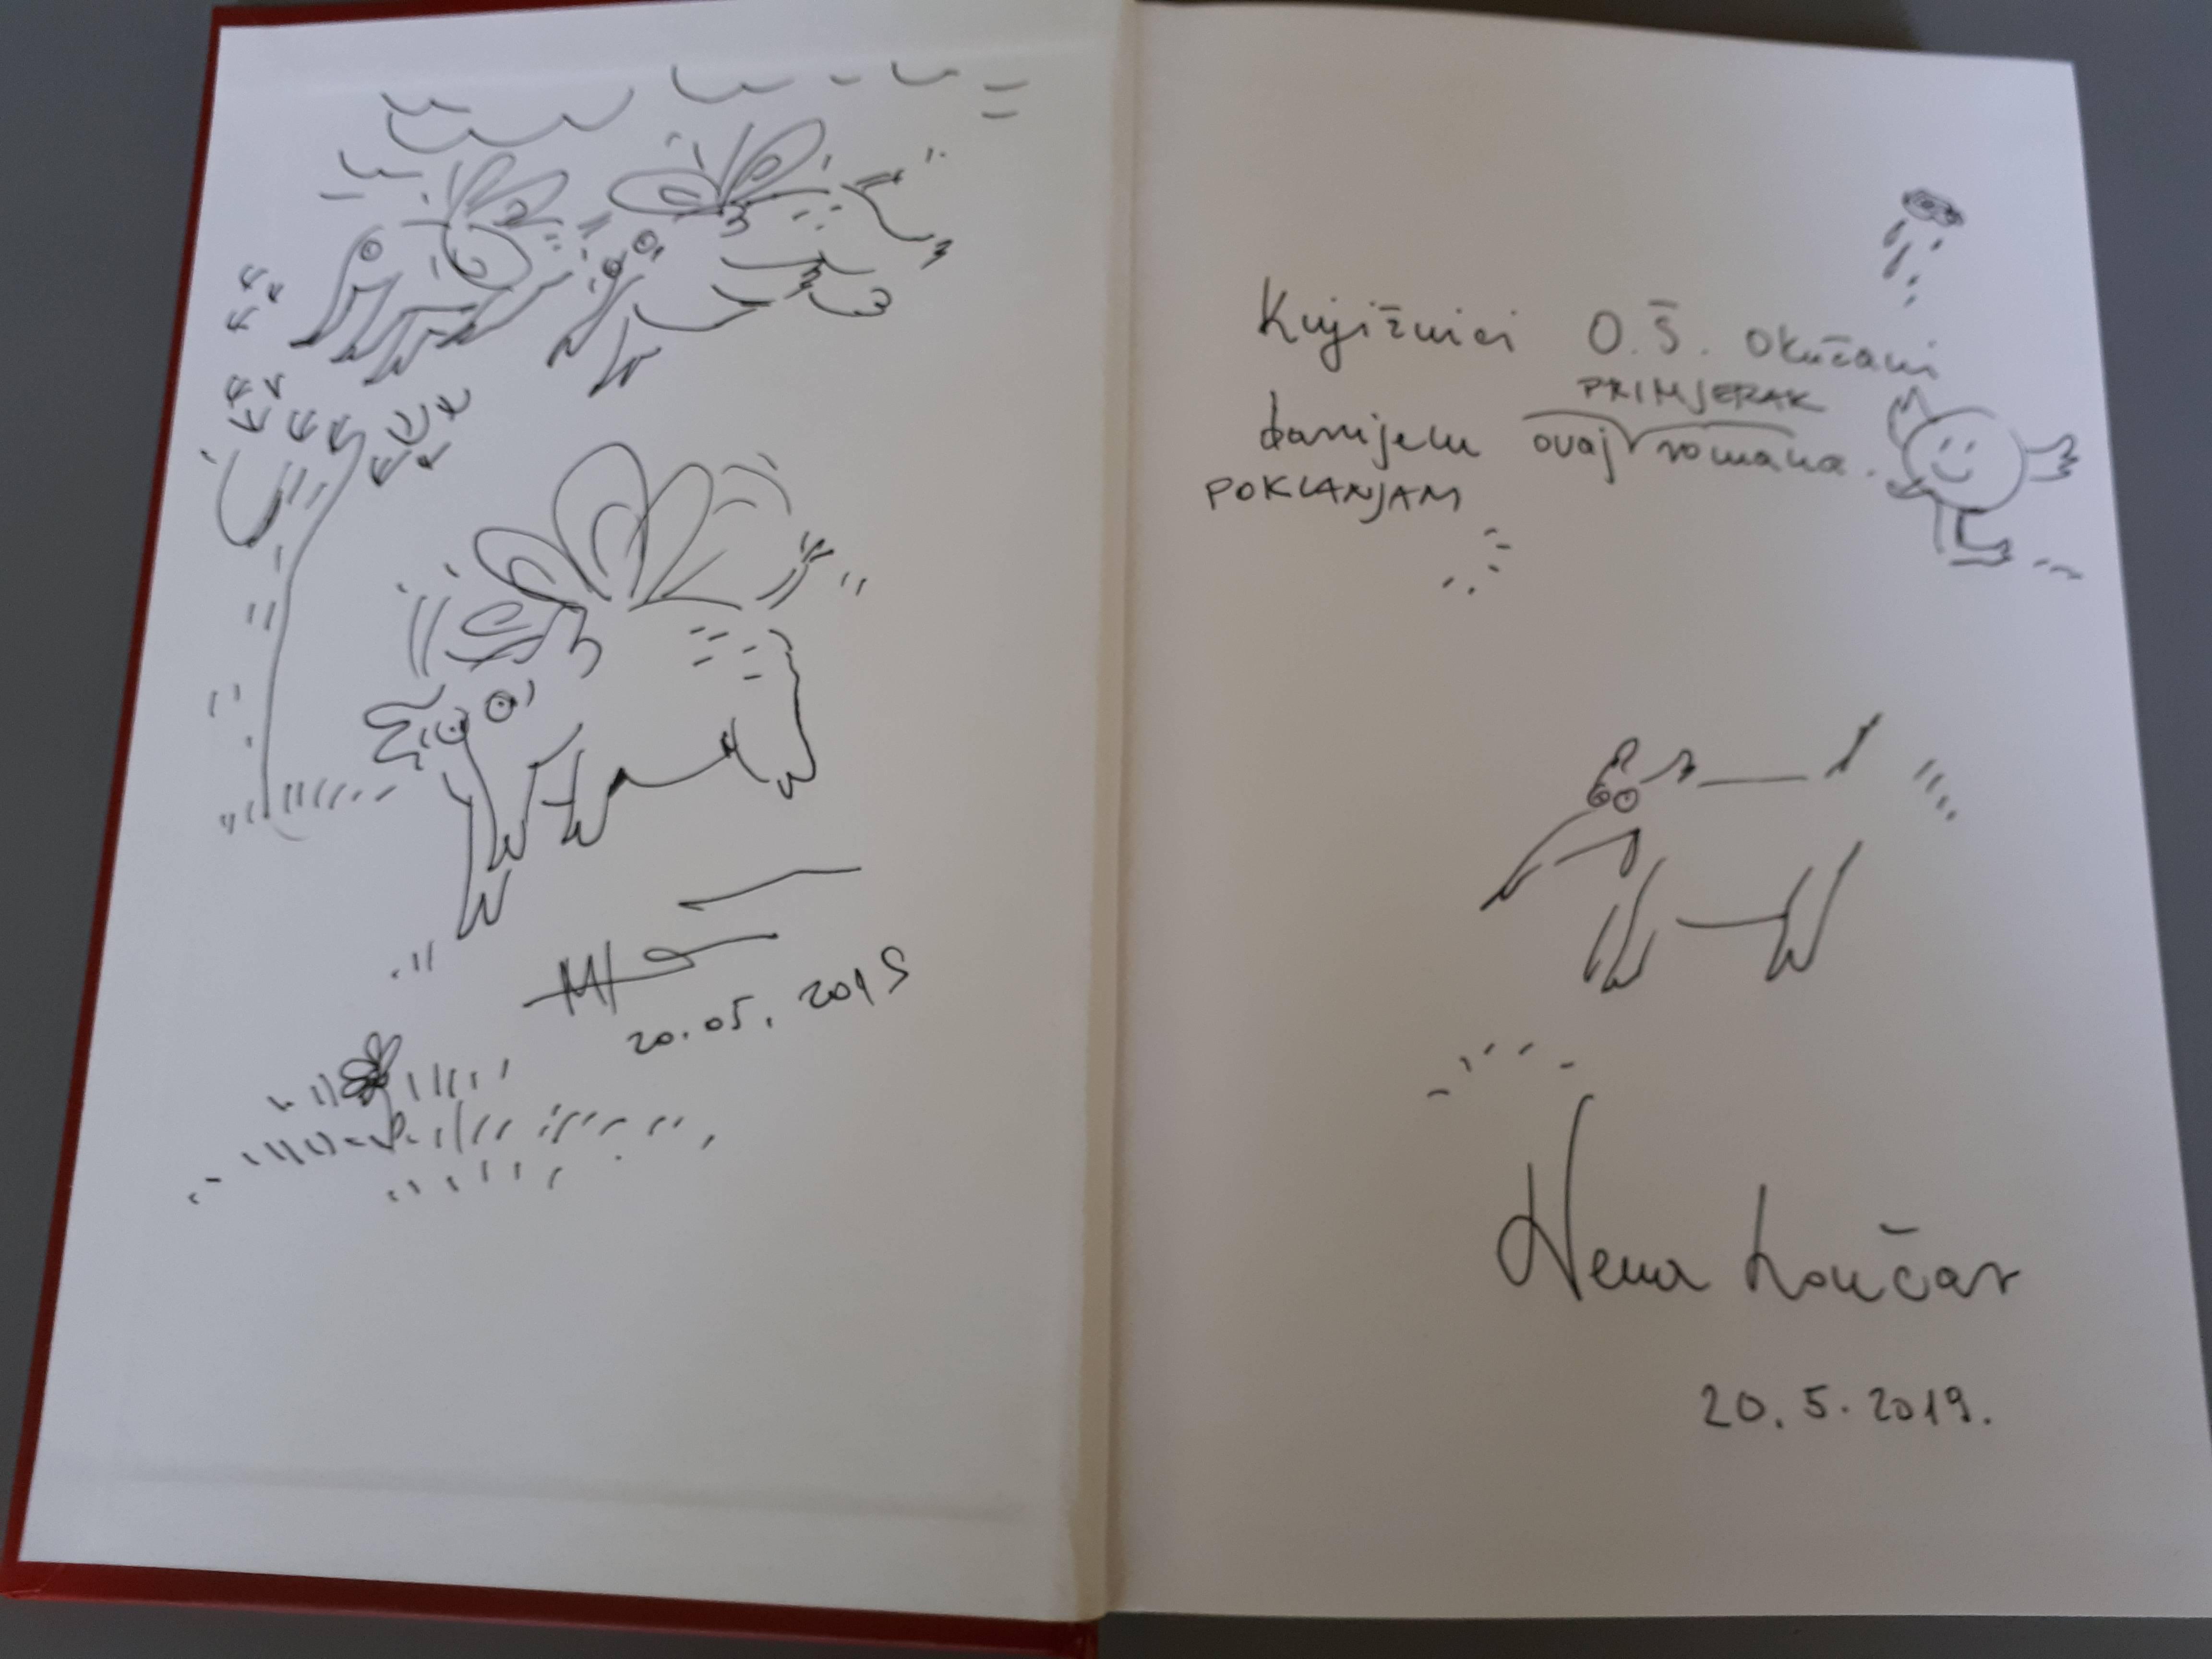 20.05.2019
Knjižnici O.Š. Okučani
PRIMJERAK
darujem ovaj romana.
POKLANJAM
Nena Lončar
20.5.2019.